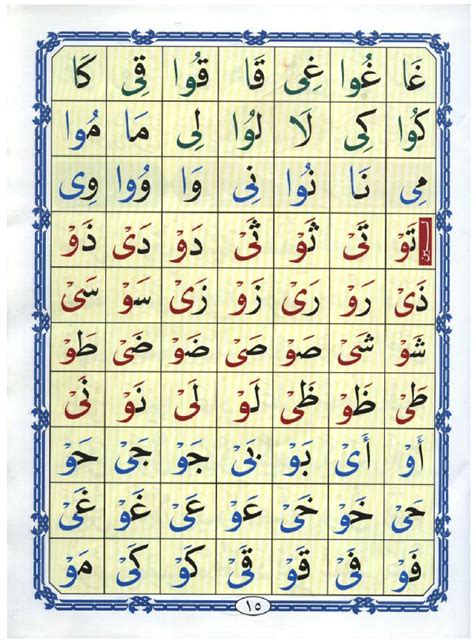 غَا غُوا غِى قَا قُوا قِى كَا
كُوا كِى لَا لُوا لِى مَا مُوا
مِى نَا نُوا نِى وَا وُوا وِى
لـين
تَوْ تَىْ ثَوْ ثَىْ دَوْ دَىْ ذَوْ
ذَىْ رَوْ رَىْ زَوْ زَىْ سَوْ سَىْ
شَوْ شَىْ صَوْ صَىْ ضَوْ ضَىْ طَوْ
طَىْ ظَوْ ظَىْ لَوْ لَىْ نَوْ نَىْ
أَوْ أَىْ بَوْ بَىْ جَوْ جَىْ حَوْ
حَىْ خَوْ خَىْ عَوْ عَىْ غَوْ غَىْ
فَوْ فَىْ قَوْ قَىْ كَوْ كَىْ مَوْ
١٥